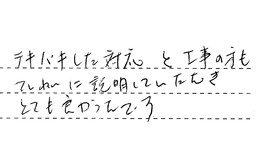 テキパキした対応と工事の方も
ていねいに説明していただき
とても良かったです